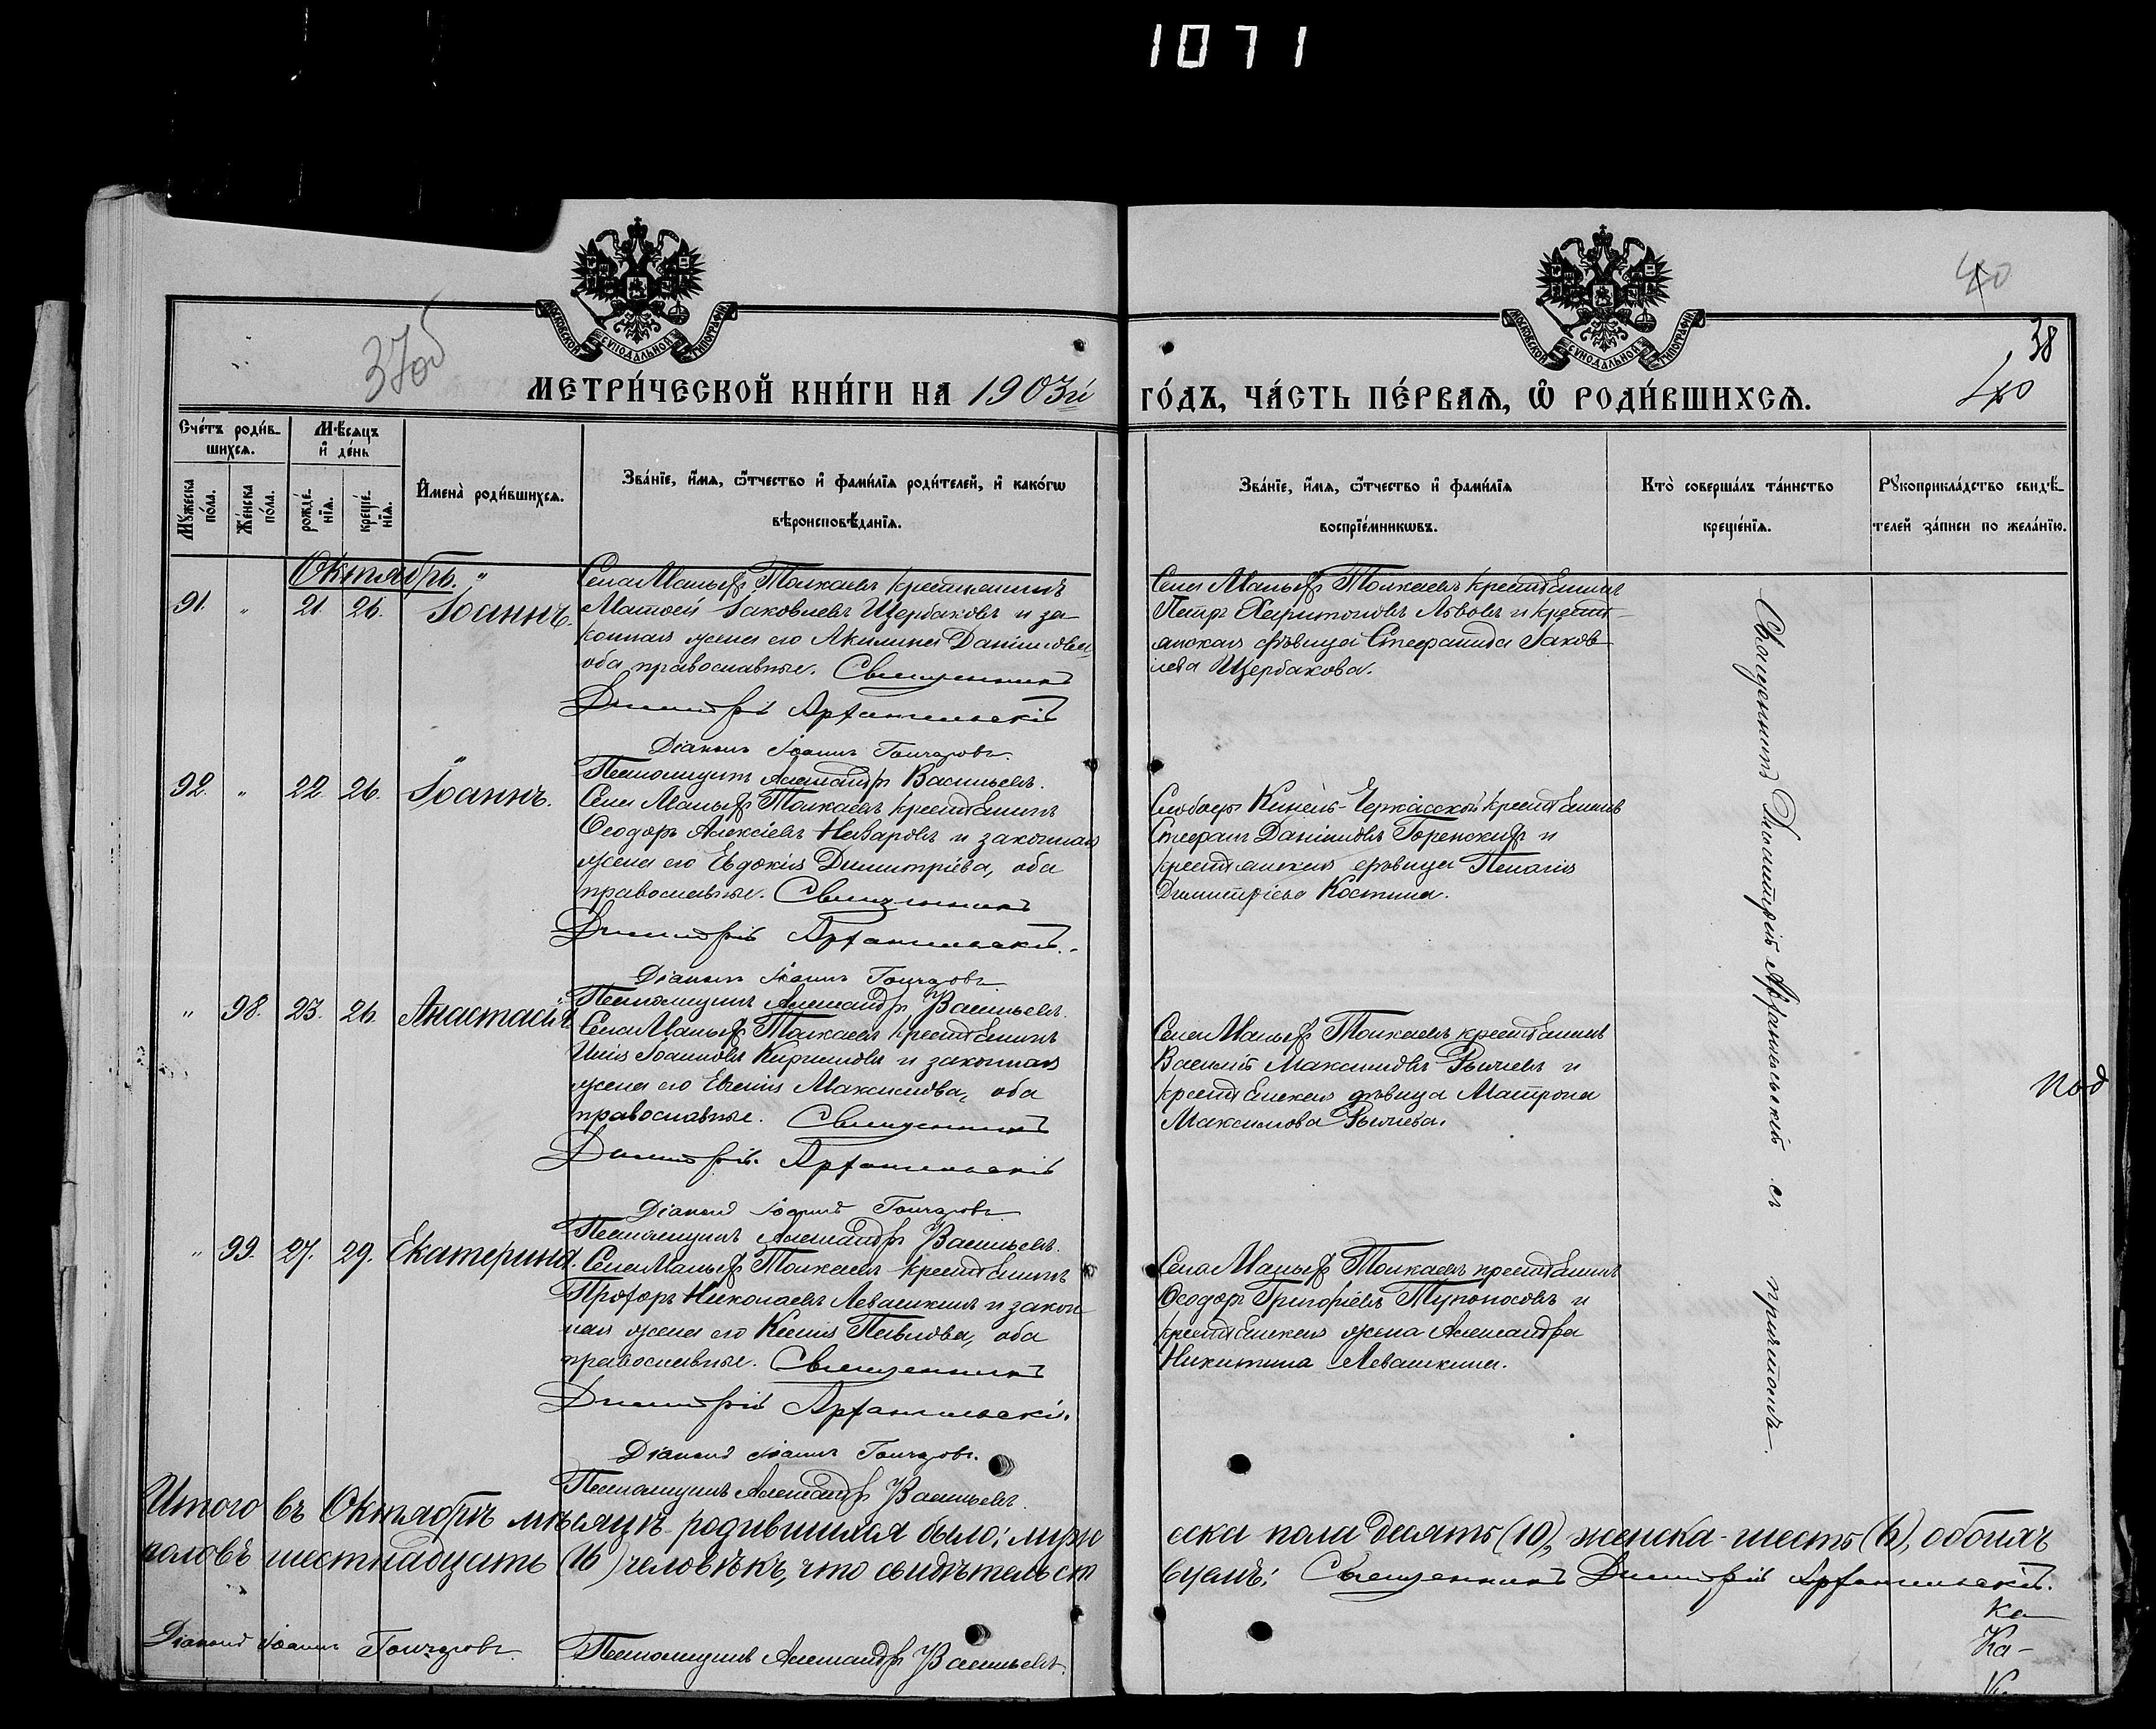 1071
40
37об
МОСКОВСКОЙ СУНОДАЛЬНОЙ ТИПОГРАФІИ
МОСКОВСКОЙ СУНОДАЛЬНОЙ ТИПОГРАФІИ
38
40
МЕТРИ́ЧЕСКОЙ КНИ́ГИ НА 1903й ГО́ДЪ, ЧА́СТЬ ПЕ́РВАѦ, Ѽ РОДИ́ВШИХСѦ.
Сче́тъ роди́в-
шихсѧ.
Мѣ́сѧцъ
и де́нь
Мꙋ́жеска по́ла.
Же́нска по́ла.
рожде́нїѧ.
креще́нїѧ.
И҆мена̀ роди́вшихсѧ.
Зва́нїе, и҆́мѧ, ѻ҆́тчество и҆ фами́лїѧ роди́телей, и҆ како́гѡ
вѣроисповѣ́данїѧ.
Зва́нїе, и҆́мѧ, ѻ҆́тчество и҆ фами́лїѧ
воспрїе́мникѡвъ.
Кто̀ соверша́лъ та́инство
креще́нїѧ.
Рꙋкоприкла́дство свидѣ́-
телей за́писи по жела́нїю.
Октябрь.
91. " 21. 26. Іоаннъ.
Села Малыхъ Толкаевъ крестьянинъ
Матѳей Іаковлевъ Щербаковъ и за-
конная жена его Акилина Даніилова,
оба православные. Священникъ
Димитрій Архангельскій
Діаконъ Іоаннъ Гончаровъ.
Псаломщикъ Александръ Васильевъ.
Села Малыхъ Толкаевъ крестьянинъ
Петръ Харитоновъ Львовъ и крестьянская дѣвица Стефанида Іаков-
лева Щербакова.
92. " 22. 26. Іоаннъ.
Села Малыхъ Толкаевъ крестьянинъ
Ѳеодоръ Алексіевъ Наваровъ и законная
жена его Евдокія Димитріева, оба
православные. Священникъ
Димитрій Архангельскій.
Діаконъ Іоаннъ Гончаровъ
Псаломщикъ Александръ Васильевъ.
Слободы Кинель-Черкасской крестьянинъ
Стефанъ Даніиловъ Горенскихъ и
крестьянская дѣвица Пелагія
Димитріева Костина.
" 98. 23. 26. Анастасія
Села Малыхъ Толкаевъ крестьянинъ
Илія Іоанновъ Кирилловъ и законная
жена его Евгенія Максимова, оба
православные. Священникъ
Димитрій Архангельскій
Діаконъ Іоаннъ Гончаровъ
Псаломщикъ Александръ Васильевъ.
Села Малыхъ Толкаевъ крестьянинъ
Василій Максимовъ Рычевъ и
крестьянская дѣвица Матрона
Максимова Рычева.
" 99. 27. 29. Екатерина.
Села Малыхъ Толкаевъ крестьянинъ
Прохоръ Николаевъ Левашкинъ и закон-
ная жена его Ксенія Павлова, оба
православные. Священникъ
Димитрій Архангельскій.
Діаконъ Іоаннъ Гончаровъ.
Псаломщикъ Александръ Васильевъ.
Села Малыхъ Толкаевъ крестьянинъ
Ѳеодоръ Григоріевъ Тупоносовъ и
крестьянская жена Александра
Никитина Левашкина.
Священникъ Димитрій Архангельскій съ причтомъ.
Под
Итого въ Октябрѣ мѣсяцѣ родившихся было: мужеска пола десять (10), женска-шесть (6), обоихъ
половъ шестнадцать (16) человѣкъ, что свидѣтельствуемъ: Священникъ Димитрій Архангельскій.
Діаконъ Іоаннъ Гончаровъ. Псаломщикъ Александръ Васильевъ.
Ка
Ка-